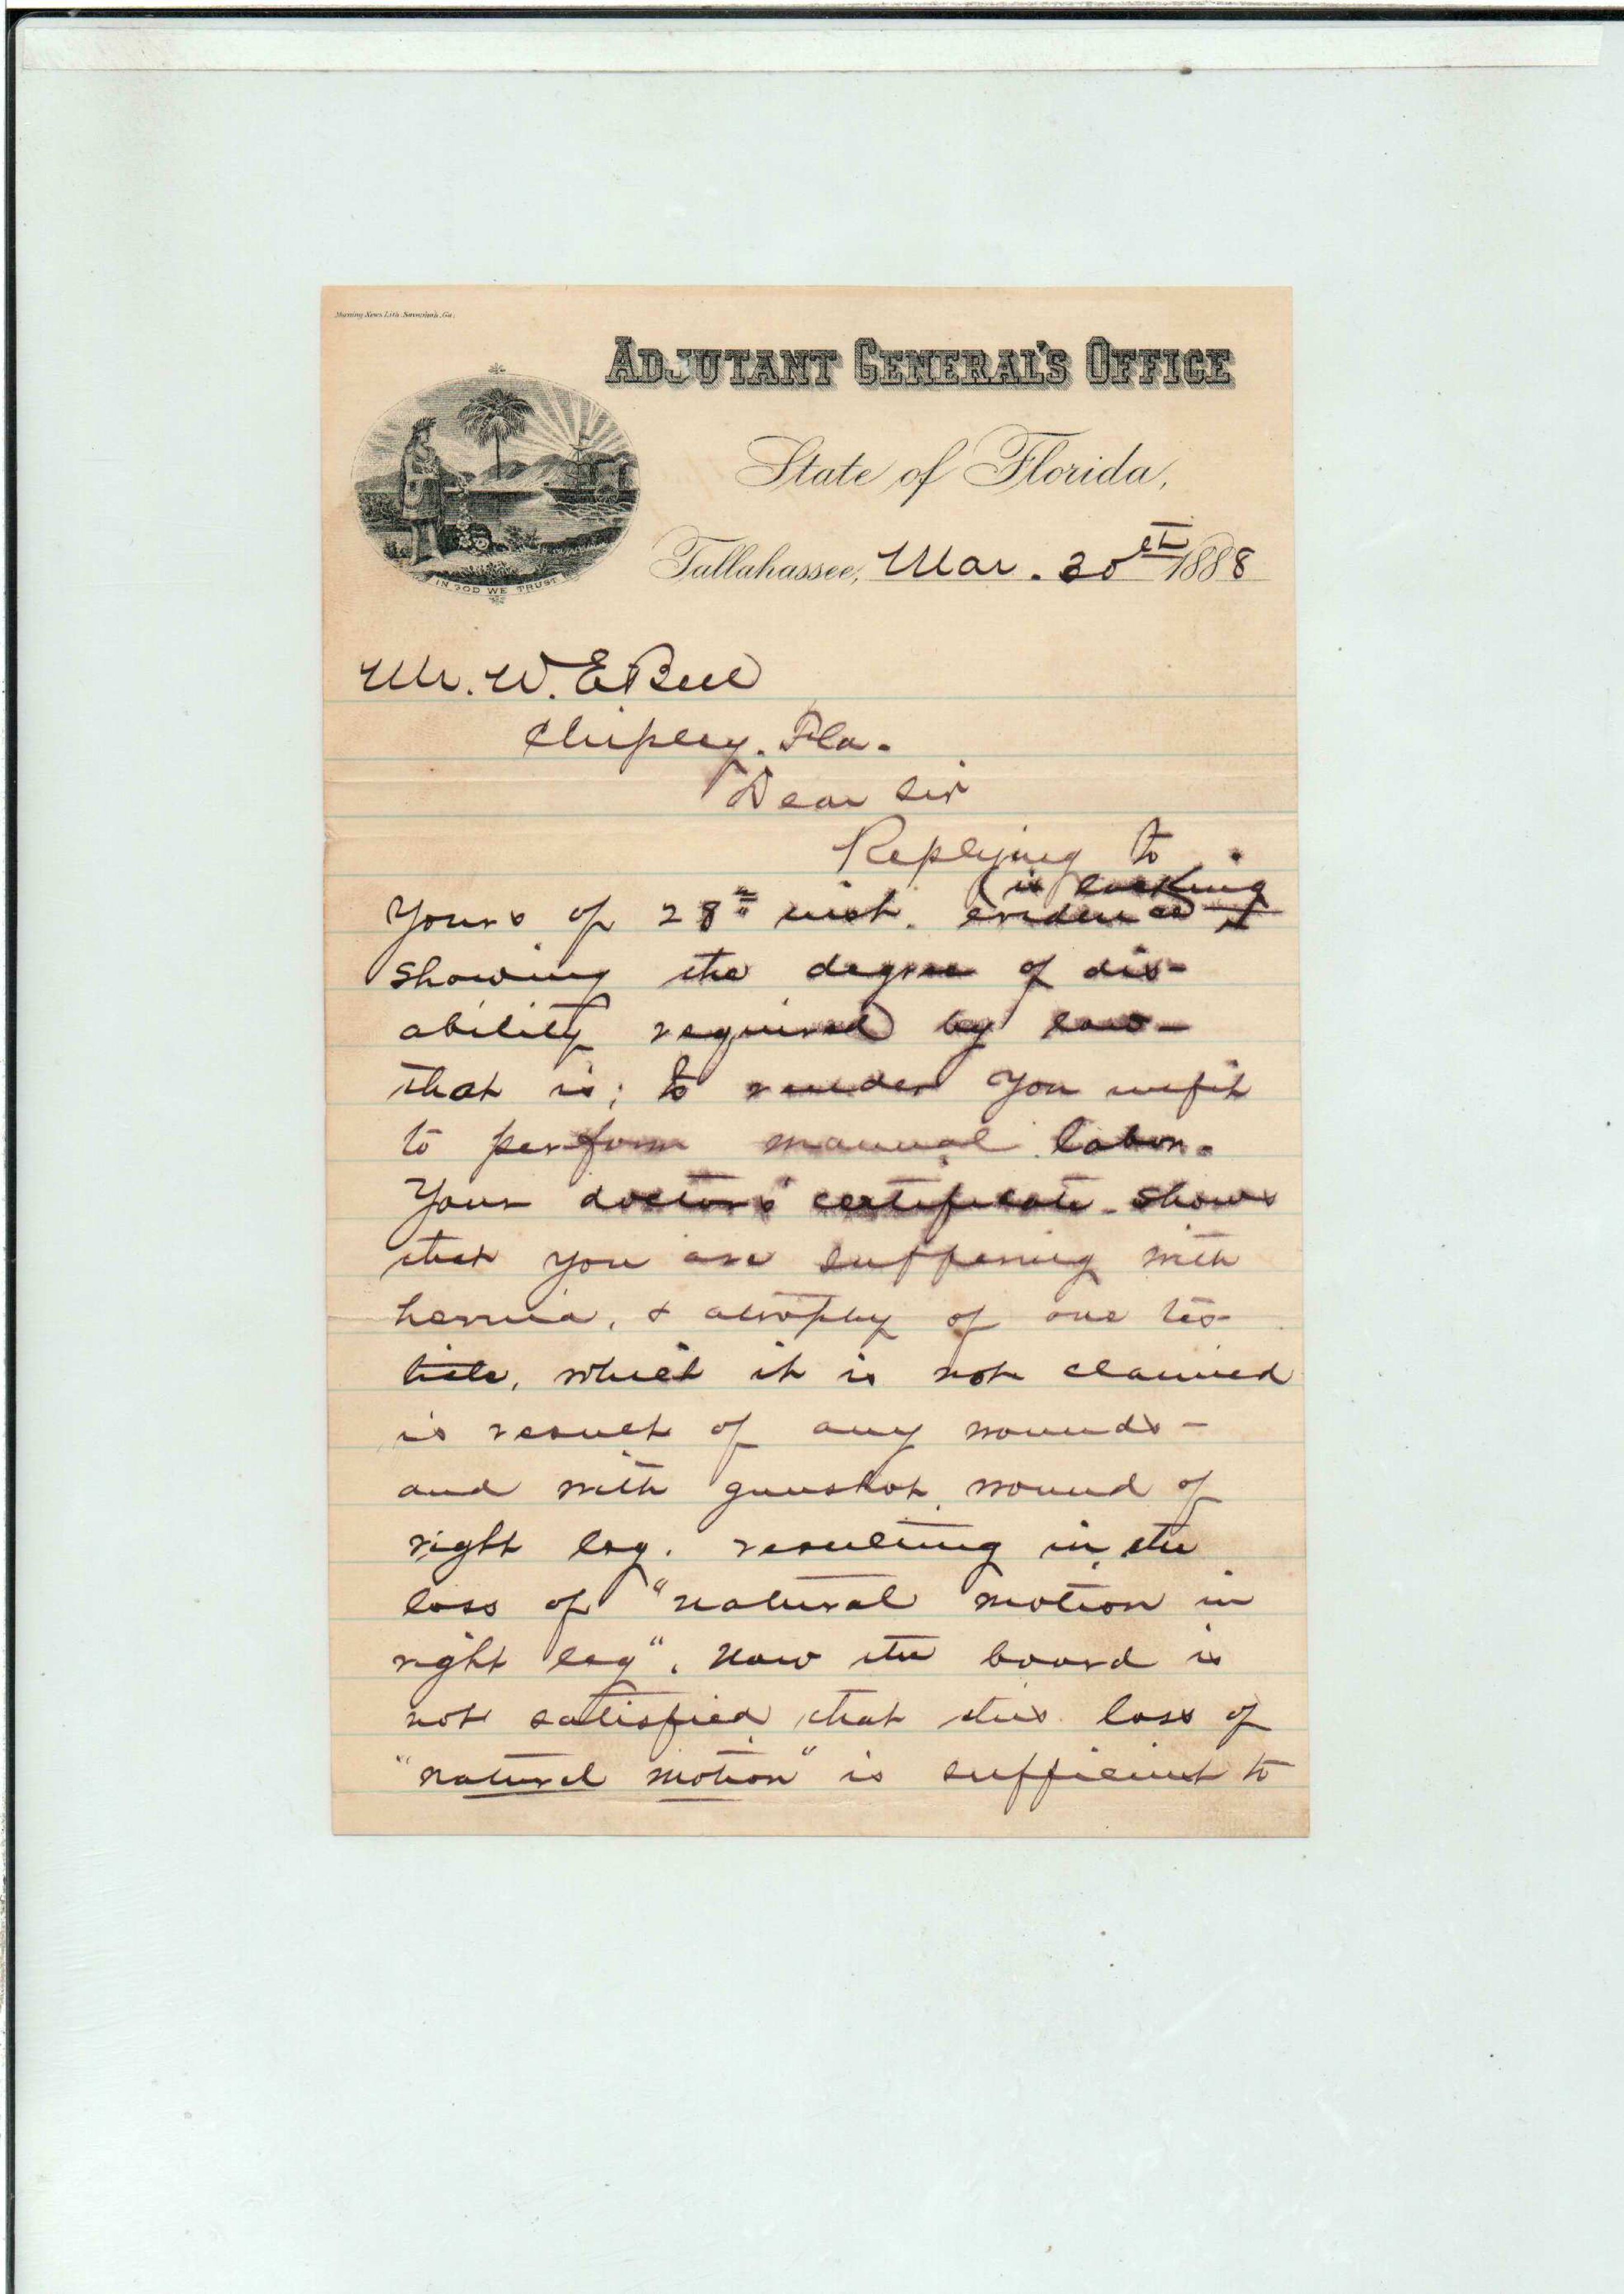 Morning News Lith. Savannah, Ga.
ADJUTANT GENERAL'S OFFICE
State of Florida,
Tallahassee, Mar. 30th 1888
IN GOD WE TRUST
Mr. W. E Bell
Chipley. Fla.
Dear Sir
Replying to
is lacking
Yours of 28th inst. evidence
showing the degree of dis-
ability required by law-
that is; to render you unfit
to perform manual labor.
Your doctors' certificate shows
that you are suffering with
hernia, & atrophy of one tes-
ticle, which it is not claimed
is result of any wounds-
and with gunshot wound of
right leg. resulting in the
loss of "natural motion in
right leg". Now the board is
not satisfied that this loss of
"natural motion" is sufficient to